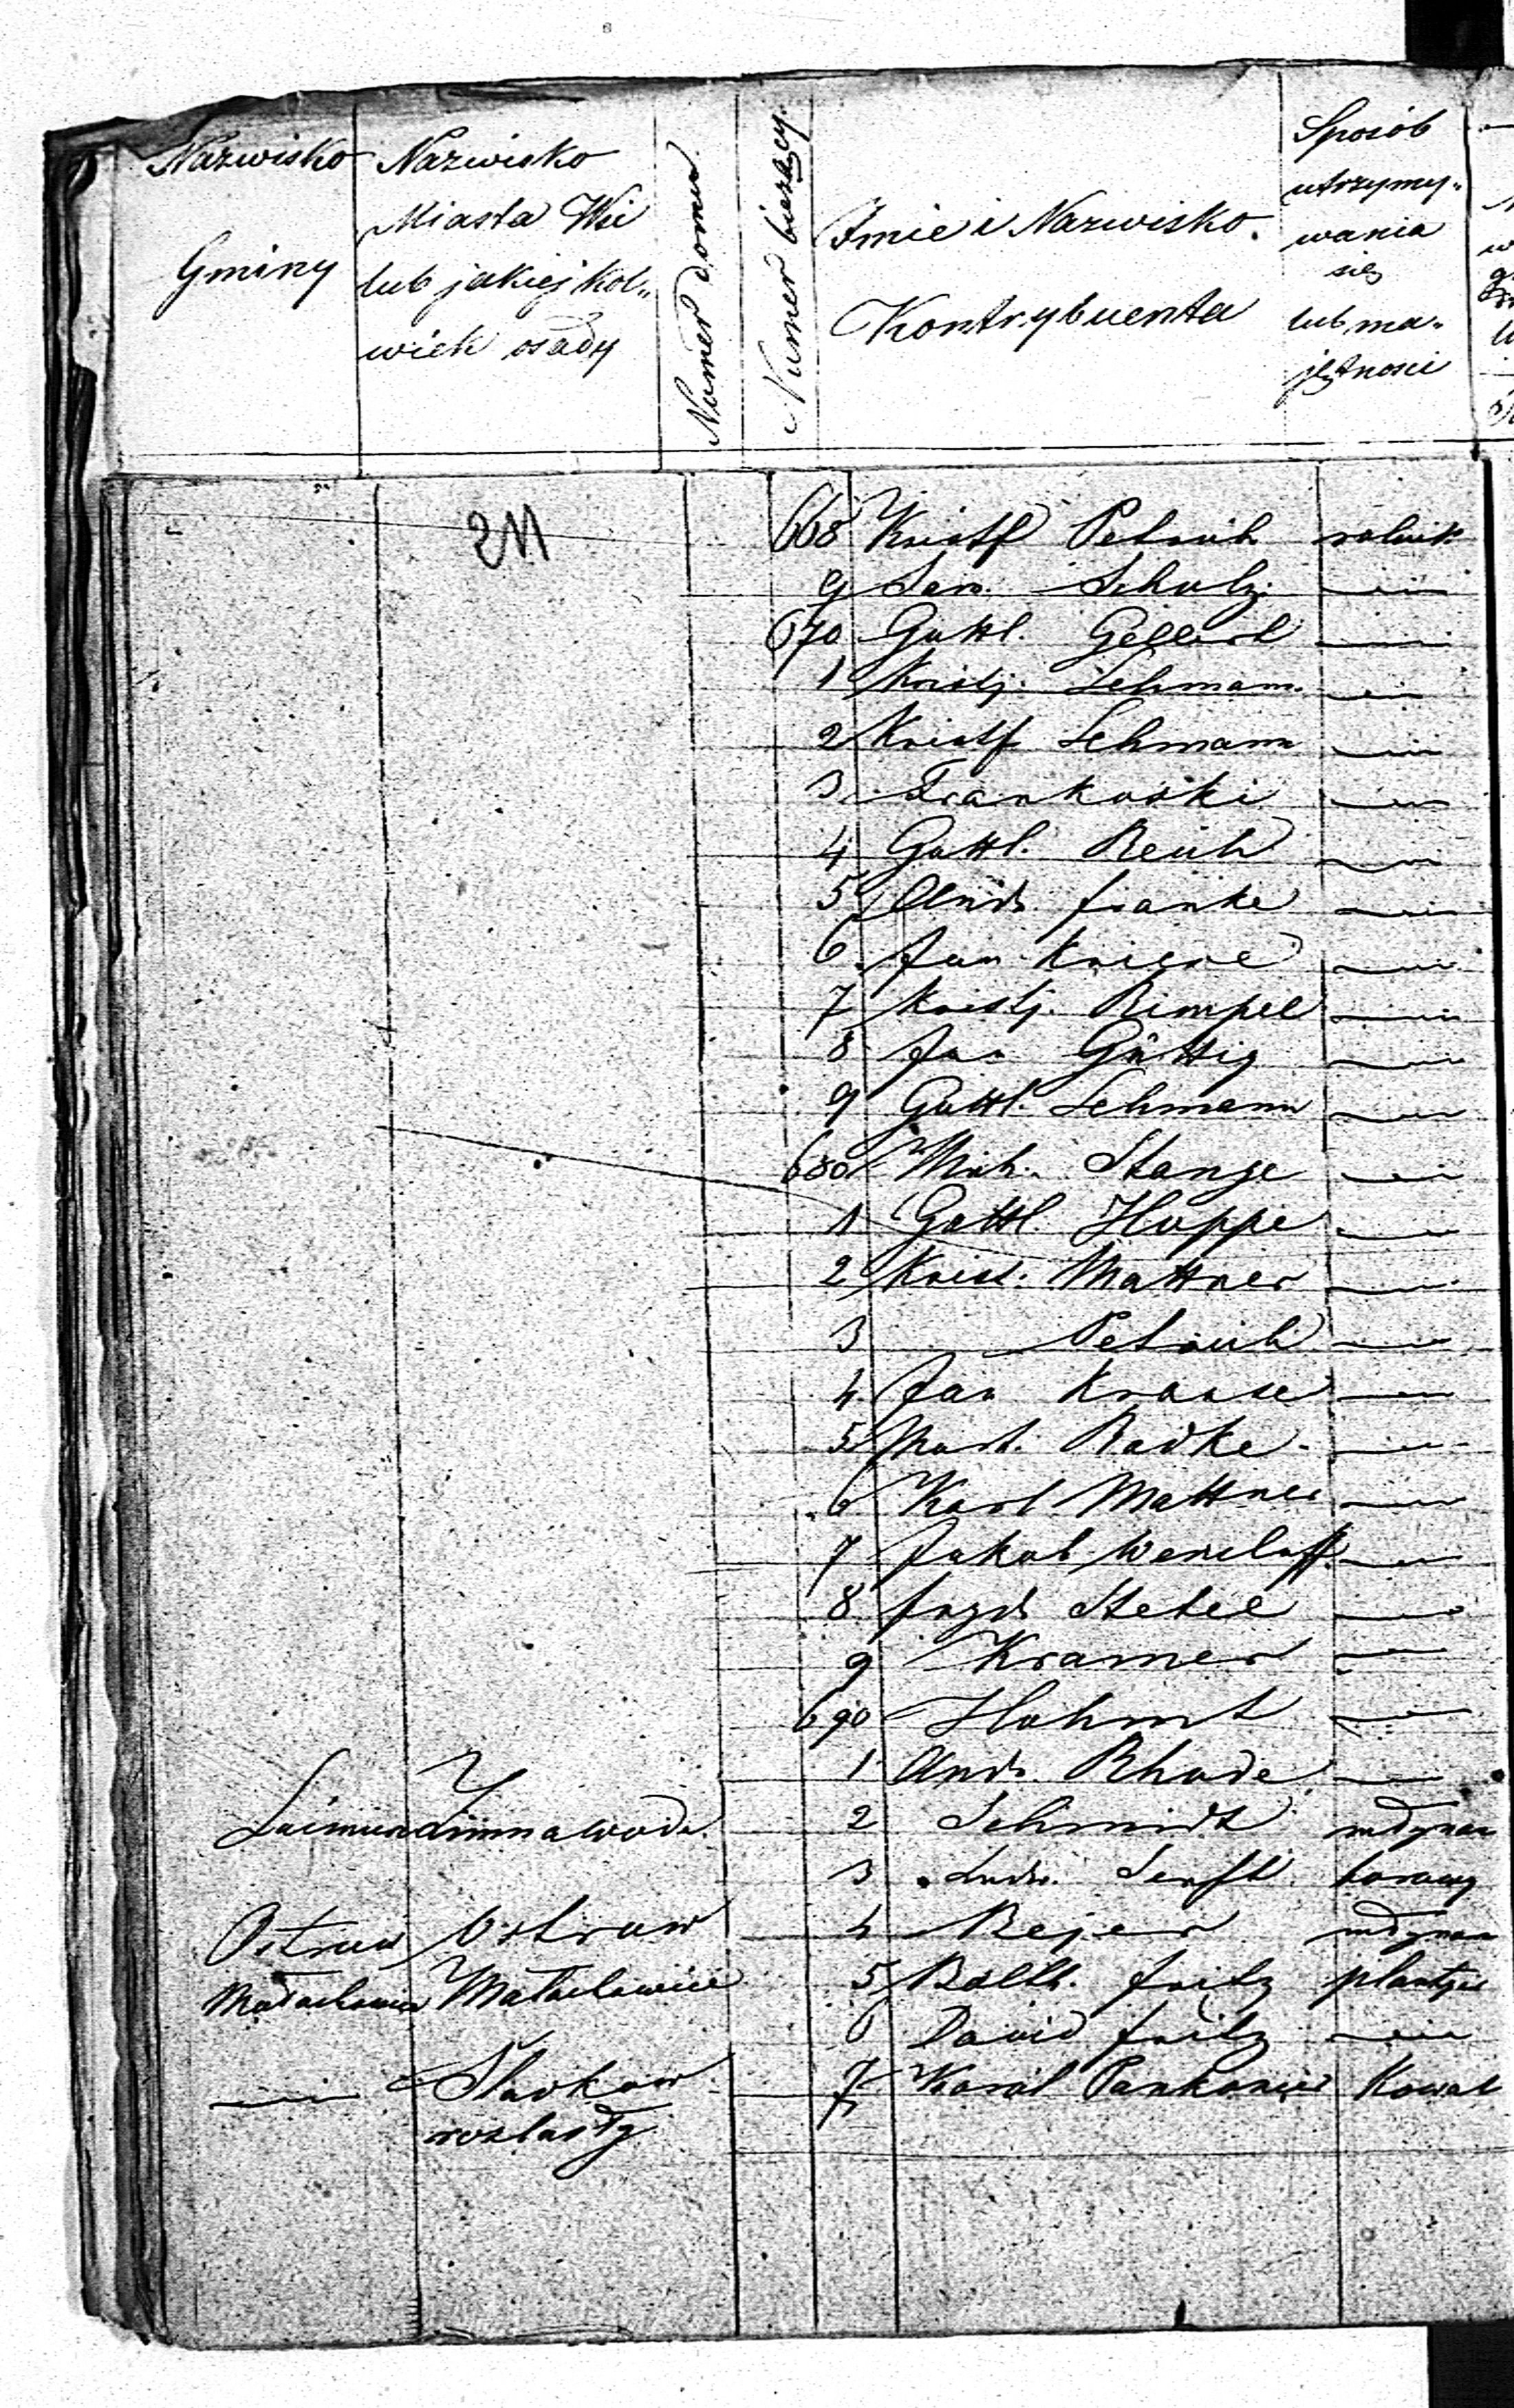 Nazwisko Gminy
Nazwisko Miasta Wsi lub jakiejkol„ wiek osady
Numer domu
Numer bieżący.
Imie i Nazwisko. Kontrybuenta
Sposób utrzymy„ wania się lub ma„ jętnosci
211
668 Kristf Petrich rolnik
9 Sam. Schulz —"—
670 Gottl. Gellert —"—
1 Kristj. Lehmann —"—
2 Kristf Lehmann —"—
3 Frankoski —"—
4 Gottl. Reich —"—
5 Andr. Franke —"—
6 Jan —"—
7 Kristj. Rimpel —"—
8 Jan Güttig —"—
9 Gottl. Lehmann —"—
680 Mich. Stange —"—
1 Gottl. Hoppe —"—
2 Krist. Mattner —"—
3 Petrich —"—
4 Jan Krause —"—
5 Mart. Radke —"—
6 Karl Mattner —"—
7 Jakob Wenclaff —"—
8 Stebel —"—
9 Kramer —"—
690 —"—
1 Andr. Rhode —"—
Zimnawoda 2 Schmidt młynarz
3 Ludw. Senft
Ostrow Ostrow 4 Bejer młynarz
Małachowice 5 Balth. Fritz
6 David Fritz —"—
—"— 7 Karol Kowal